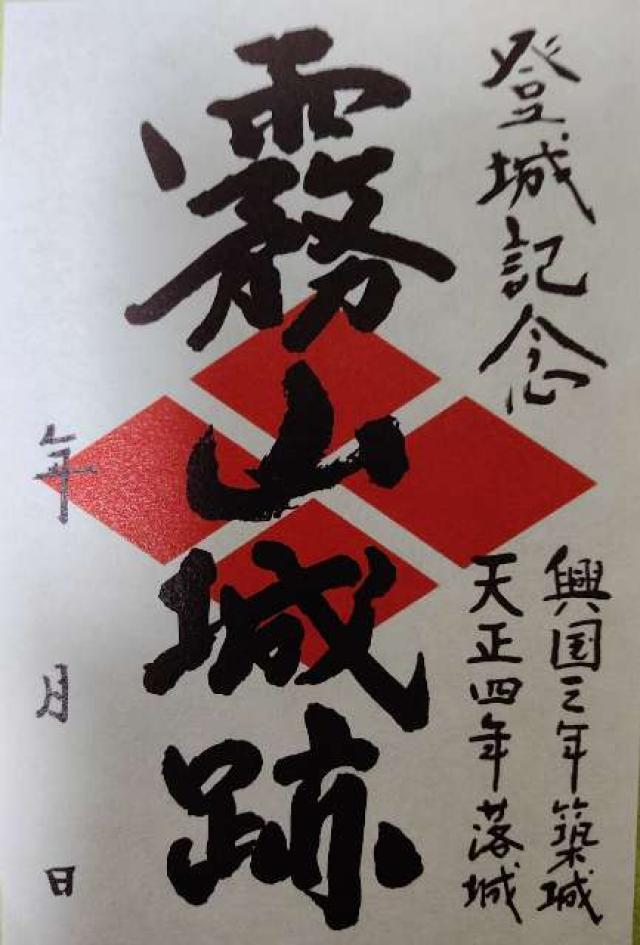 登城記念
興国三年築城
天正四年落城
霧山城跡
年 月 日